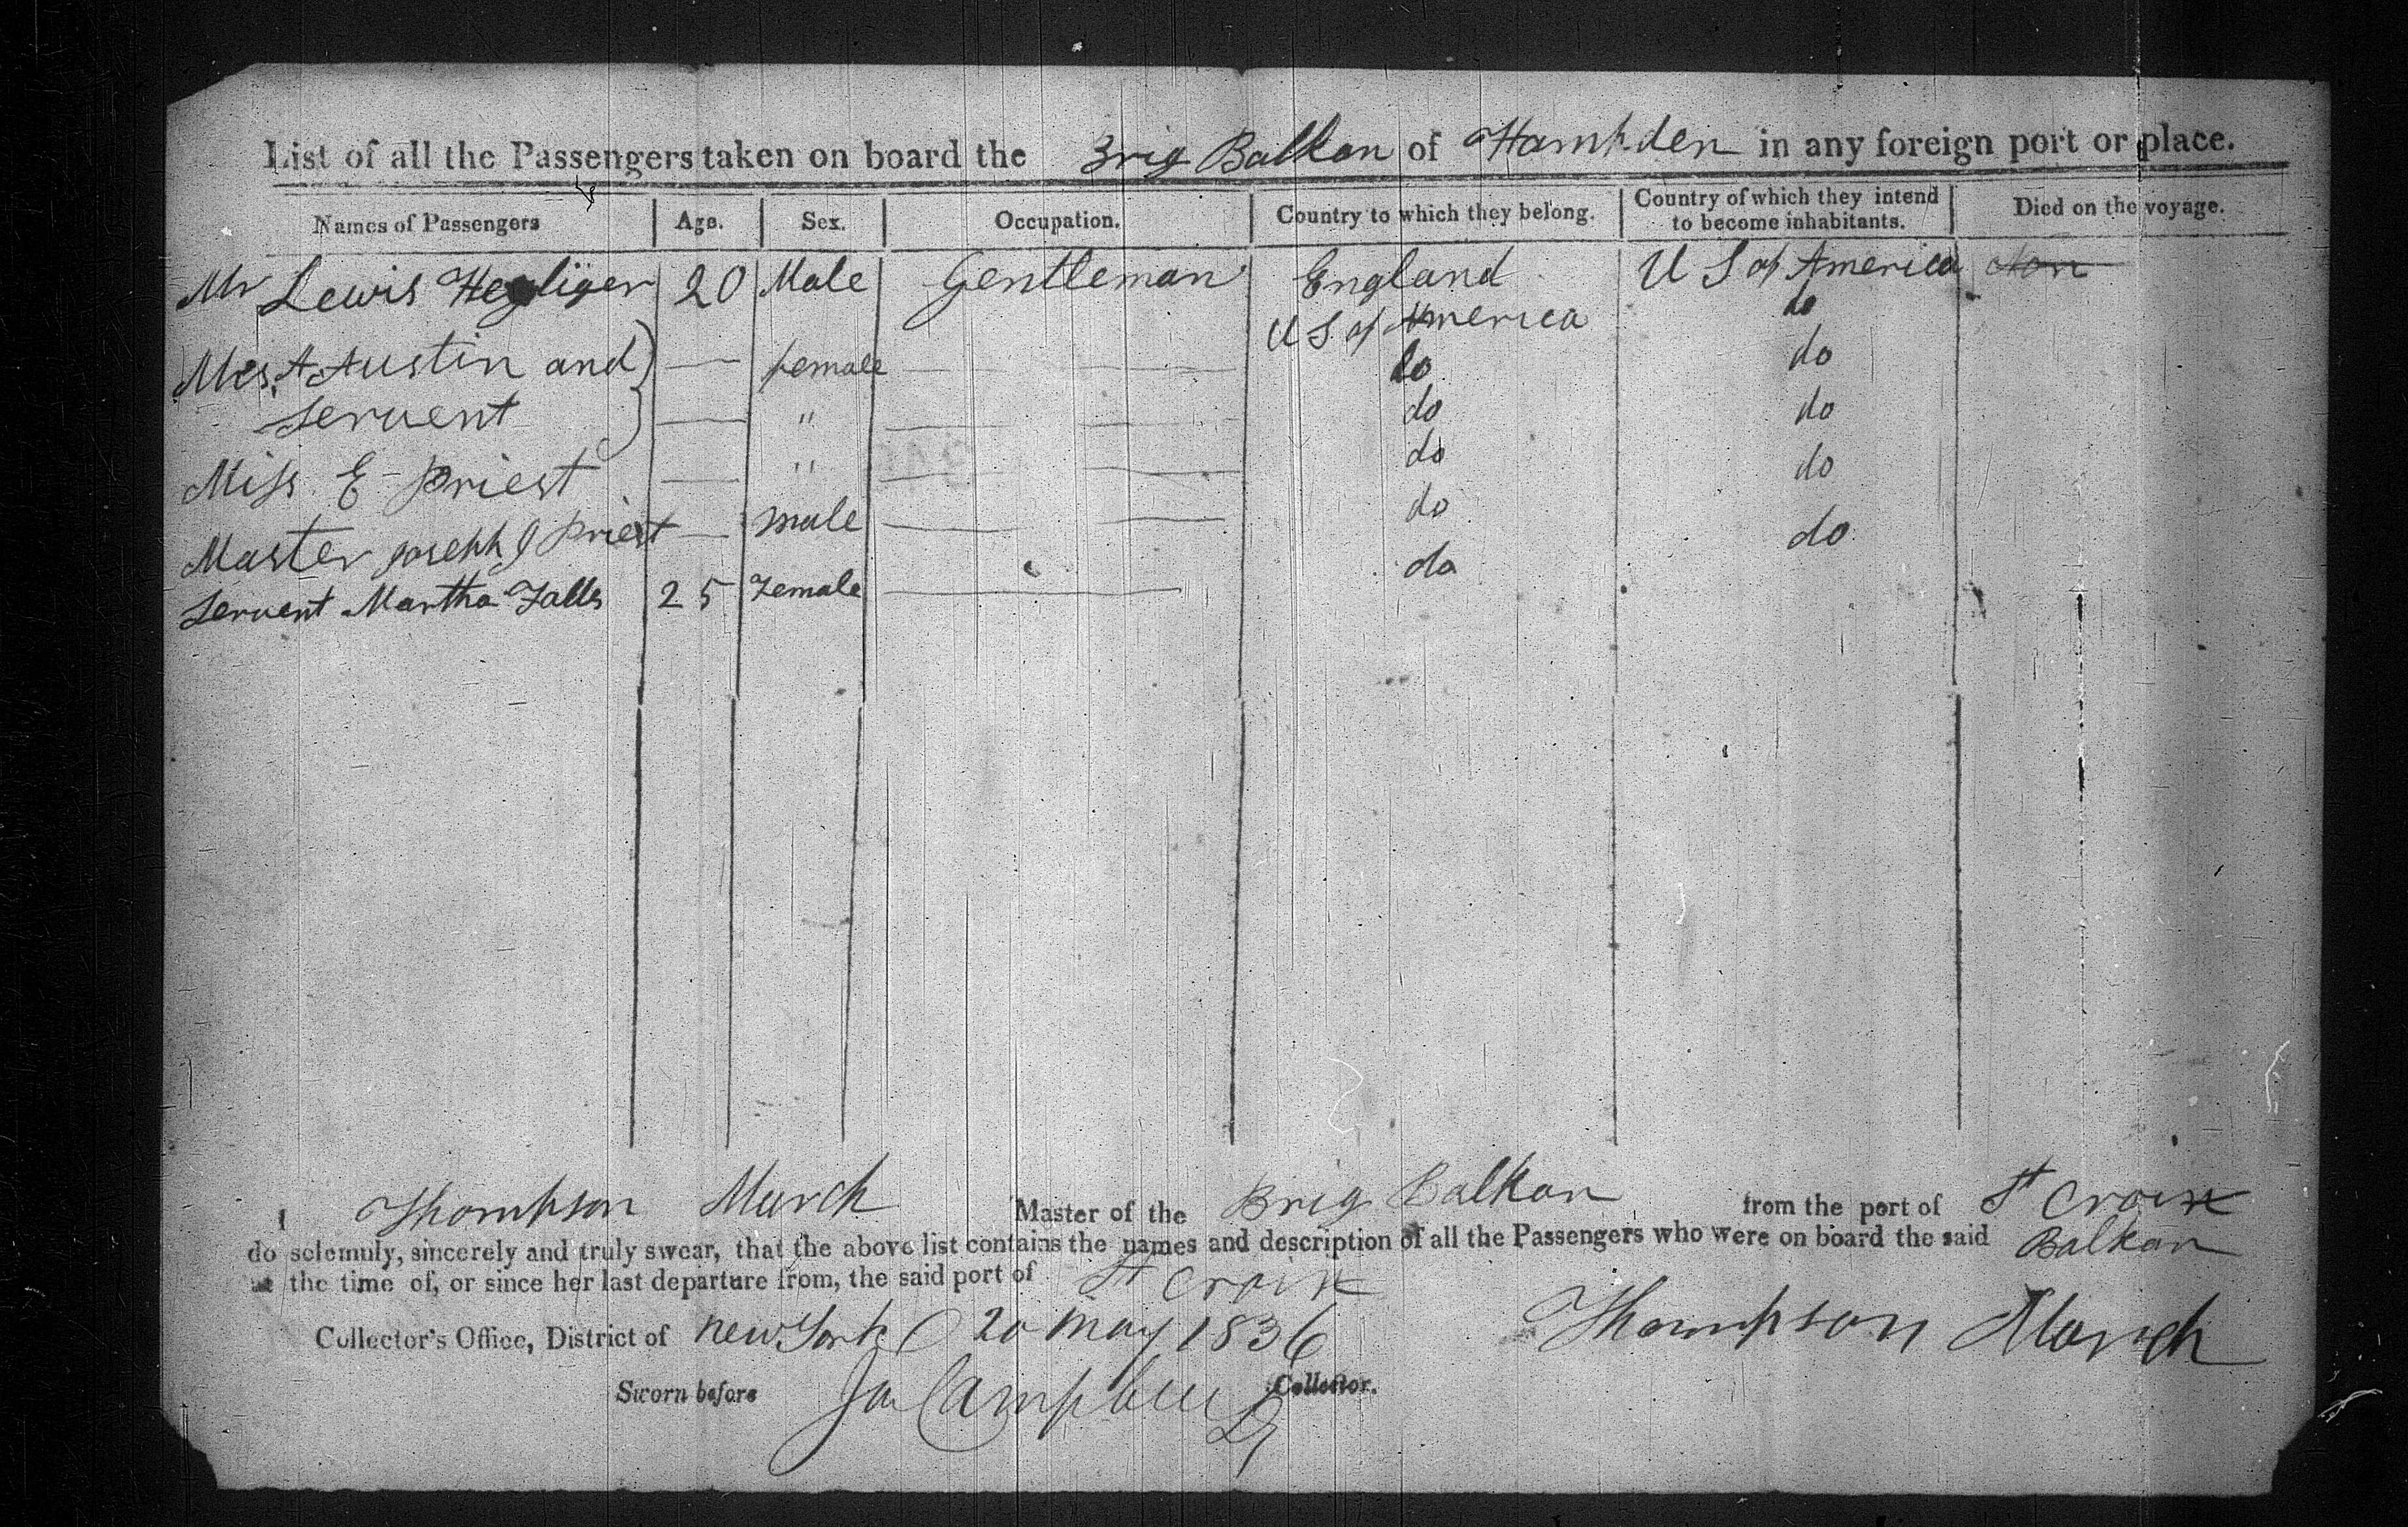 List of all the Passengers taken on board the Brig Balkan of Hampden in any foreign port or place.
Names of Passengers Age. Sex. Occupation. Country to which they belong. Country of which they intend to become inhabitants. Died on the voyage.
Mr Lewis 20 Male Gentleman England U S of America
U S of America do
Mrs. A Austin and — female — — do do
Servent — " — — do do
Miss E Priest — " — — do do
Master Joseph J Priest — male — — do
Servent Martha Falls 25 Female — do do
I Thompson March Master of the Brig Balkan from the port of St Croix
do solemnly, sincerely and truly swear, that the above list contains the names and description of all the Passengers who were on board the said Balkan
at the time of, or since her last departure from, the said port of St Croix
Collector's Office, District of New York 20 May 1836 Thompson March
Sworn before Campbell Collector.